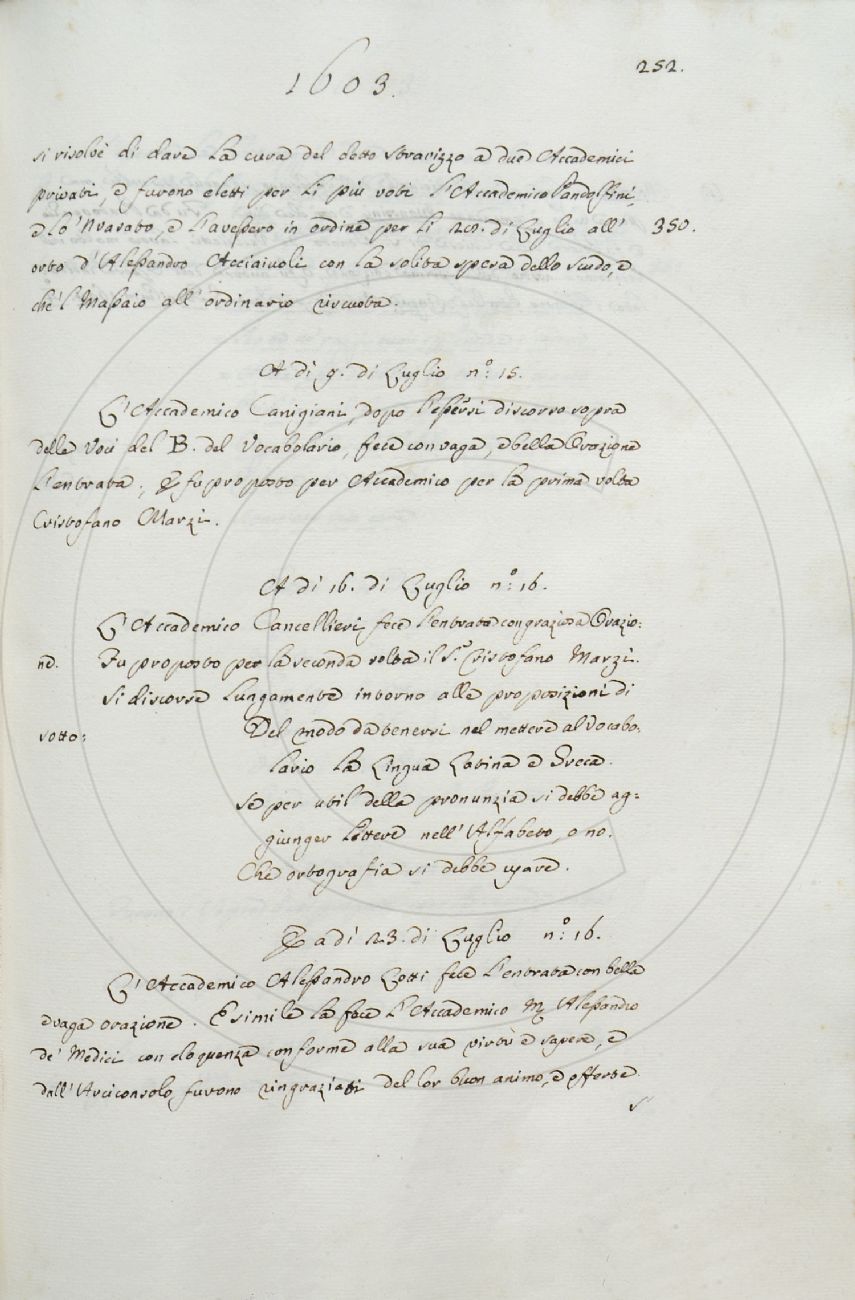 1603.
252.
si risolvè di dare la cura del detto stravizzo a due Accademici
privati, e furono eletti per li più voti l'Accademico Pandolfini,
e lo 'Nvasato, e l'avessero in ordine per li 20. di Luglio all'
350.
orto d'Alessandro Acciaiuoli con la solita spesa dello scudo, e
che 'l Massaio all'ordinario riscuota.
A di 9. di Luglio n.° 15.
L'Accademico Canigiani, dopo l'essersi discorso sopra
delle Voci del B. del Vocabolario, fece con vaga, e bella Orazione
l'entrata; E fu proposto per Accademico per la prima volta
Cristofano Marzi.
A di 16. di Luglio n.° 16.
L'Accademico Cancellieri fece l'entrata con graziosa Orazio:
ne. Fu proposto per la seconda volta il S.r Cristofano Marzi.
Si discorse lungamente intorno alle proposizioni di
sotto: Del modo da tenersi nel mettere al Vocabo:
lario la Lingua Latina e Greca.
Se per util della pronunzia si debbe ag:
giunger lettere nell'Alfabeto, o no.
Che ortografia si debbe usare.
E a di 23. di Luglio n.° 16.
L'Accademico Alessandro Zotti fece l'entrata con bella
e vaga orazione. E simile la fece l'Accademico M. Alessandro
de' Medici con eloquenza conforme alla sua virtù e sapere, e
dall'Arciconsolo furono ringraziati del lor buon animo, e offerte.